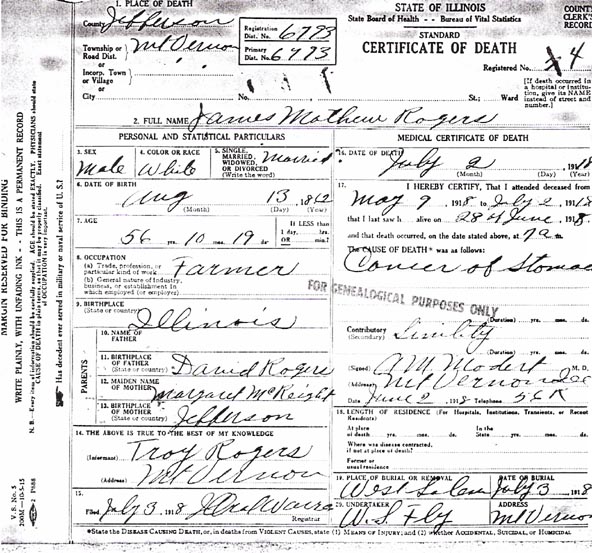 1. PLACE OF DEATH
County Jefferson
Township or Road Dist. or Mt Vernon
Incorp. Town or Village or
City
Registration Dist. No. 6793
Primary Dist. No. 6793
STATE OF ILLINOIS
State Board of Health - - Bureau of Vital Statistics
STANDARD
CERTIFICATE OF DEATH
COUNTY CLERK'S RECORD
Registered No. 4
[If death occurred in a hospital or institution, give its NAME instead of street and number.]
No. St.; Ward
2. FULL NAME James Mathew Rogers
PERSONAL AND STATISTICAL PARTICULARS
3. SEX Male
4. COLOR OR RACE White
5. SINGLE, MARRIED, WIDOWED, OR DIVORCED (Write the word) Married
6. DATE OF BIRTH Aug 13 1862
(Month) (Day) (Year)
7. AGE 56 yrs. 10 mos. 19 ds.
If LESS than 1 day, hrs. OR min.?
8. OCCUPATION Farmer
(a) Trade, profession, or particular kind of work
(b) General nature of industry, business, or establishment in which employed (or employer)
9. BIRTHPLACE (State or country) Illinois
PARENTS
10. NAME OF FATHER
11. BIRTHPLACE OF FATHER (State or country) David Rogers
12. MAIDEN NAME OF MOTHER Margaret
13. BIRTHPLACE OF MOTHER (State or country) Jefferson
14. THE ABOVE IS TRUE TO THE BEST OF MY KNOWLEDGE
(Informant) Troy Rogers
(Address) Mt Vernon
15. Filed July 3 1918
Registrar
MEDICAL CERTIFICATE OF DEATH
16. DATE OF DEATH July 2 1918
(Month) (Day) (Year)
17. I HEREBY CERTIFY, That I attended deceased from
May 9 1918 to July 2 1918
that I last saw h alive on 28 of June 1918.
and that death occurred, on the date stated above, at 7 a m.
The CAUSE OF DEATH* was as follows:
Cancer of Stomac
FOR GENEALOGICAL PURPOSES ONLY
(Duration) yrs. mos. ds.
Contributory (Secondary)
(Duration) yrs. mos. ds.
(Signed) M. D.
(Address) Mt Vernon
Date June 2 1918 Telephone
18. LENGTH OF RESIDENCE (For Hospitals, Institutions, Transients, or Recent Residents)
At place of death yrs. mos. ds. In the State yrs. mos. ds.
Where was disease contracted, if not at place of death?
Former or usual residence
19. PLACE OF BURIAL OR REMOVAL West Salem
DATE OF BURIAL July 3 1918
20. UNDERTAKER W.S. Fly
ADDRESS Mt Vernon
*State the DISEASE CAUSING DEATH, or, in deaths from VIOLENT CAUSES, state (1) MEANS OF INJURY; and (2) whether ACCIDENTAL, SUICIDAL, or HOMICIDAL
MARGIN RESERVED FOR BINDING
WRITE PLAINLY, WITH UNFADING INK - - THIS IS A PERMANENT RECORD
Has decedent ever served in military or naval service of U. S.?
V. S. No. 5